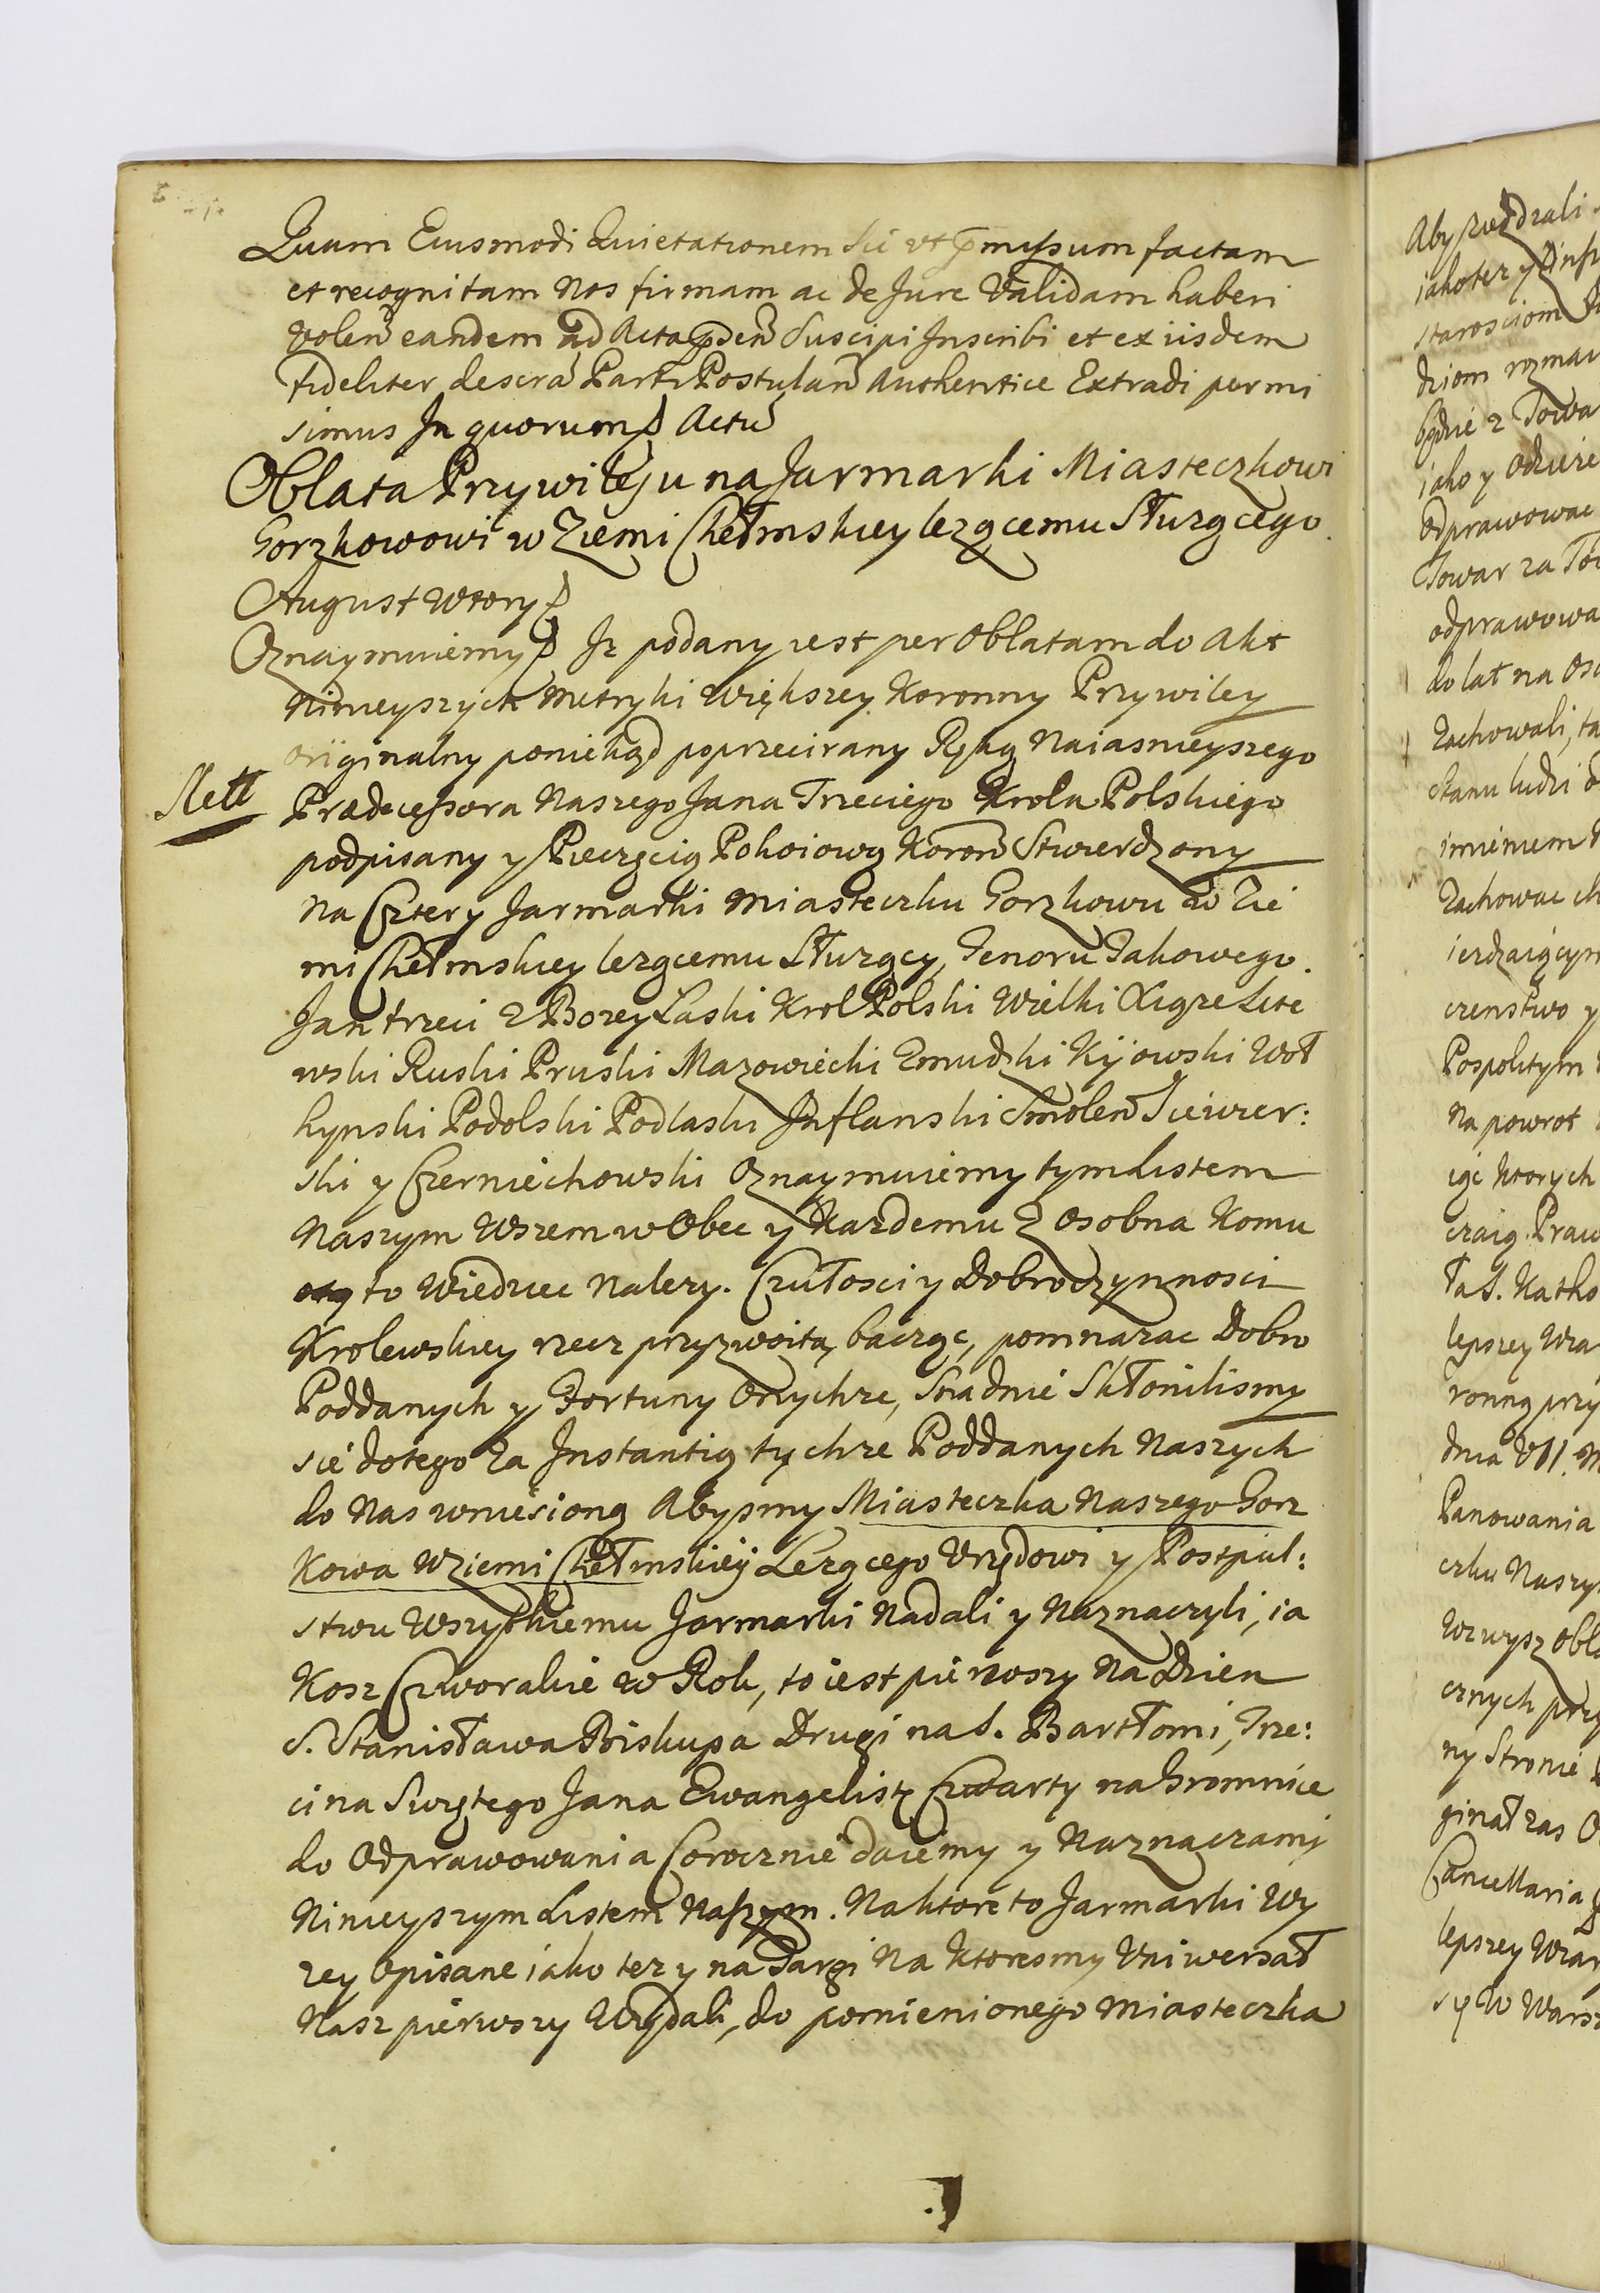 Quam Eiusmodi Quietationem Sic ut p̄missum factam
et recognitam Nos firmam ac de Jure Validam haberi
volen̄ eandem ad Acta p̄sen̄ Suscipi Inscribi et ex iisdem
fideliter descrā Parti Postulan̄ Authentice Extradi permi
simus In quorum Actū
Oblata Przywileju na Jarmarki Miasteczkowi
Gorzkowowi w Ziemi Chełmskiey lezącemu Słuzącego.
August Wtory
Oznaymuiemy Iz podany iest per Oblatam do Akt
Ninieyszych Metryki Większey Koronny Przywiley
originalny poniekąd poprzecirany Ręką Naiasnieyszego
Nett
Prædecessora Naszego Jana Trzeciego Krola Polskiego
podpisany y Pieczęcią Pokoiową Koron̄ Stwierdzony
Na Cztery Jarmarki Miasteczku Gorzkowu w Zie
mi Chełmskiey lezącemu Słuzący, Tenoru Takowego.
Jan trzeci z Bozey Łaski Krol Polski Wielki Xiąze Lite
wski Ruski Pruski Mazowiecki Zmudzki Kijowski Woł
hynski Podolski Podlaski Inflanski Smolen̄ Siewier:
ski y Czerniechowski Oznaymuiemy tym Listem
Naszym Wszem w Obec y Kazdemu z osobna Komu
to Wiedziec Nalezy. Czułosci y Dobroczynnosci
Krolewskiey rzecz przyzwoitą bacząc, pomnazac Dobro
Poddanych y Fortuny Onychze, Snadnie Skłonilismy
sie do tego Za Instantią tychze Poddanych Naszych
do Nas wniesioną Abysmy Miasteczka Naszego Gorz
Kowa w Ziemi Chełmskiey Lezącego Urzędowi y Postpul:
stwu Wszystkiemu Jarmarki Nadali y Naznaczyli, ia
Kosz Czworakie w Rok, to iest pierwszy Na Dzien
S. Stanisława Biskupa Drugi na S. Bartłomi, Trze:
ci na Swiętego Jana Ewangelisty Czwarty na Gromnice
do Odprawowania Corocznie daiemy y Naznaczamy
Ninieyszym Listem Naszym. Na ktore to Jarmarki Wy
zey Opisane iako tez y na Targi Na Ktoresmy Uniwersał
Nasz pierwszy Wydali, do pomienionego Miasteczka
Aby
iako tez y
starosciom
dziom rozmai
bądzie z Towa
iako y
Odprawowac
Towar za To
odprawowa
do lat na Os
Zachowali, ta
stanu ludzi
imieniem
Zachowac ch
ierdzaiącym
czenstwo y
Pospolitym
Na powrot
iąc Ktorych
czaią. Praw
ta S. Katho
lepszey Wia
ronną przy
dnia VII. M
Panowania
czku Naszy
Wzwysz obla
cznych przy
ny Stronie
ginał zas O
Cancellaria
lepszey Wiar
się w Warsz